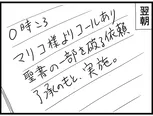 翌朝
0時ころ
マリコ様よりコールあり
聖書の一部を破る依頼
了承のもと、実施。